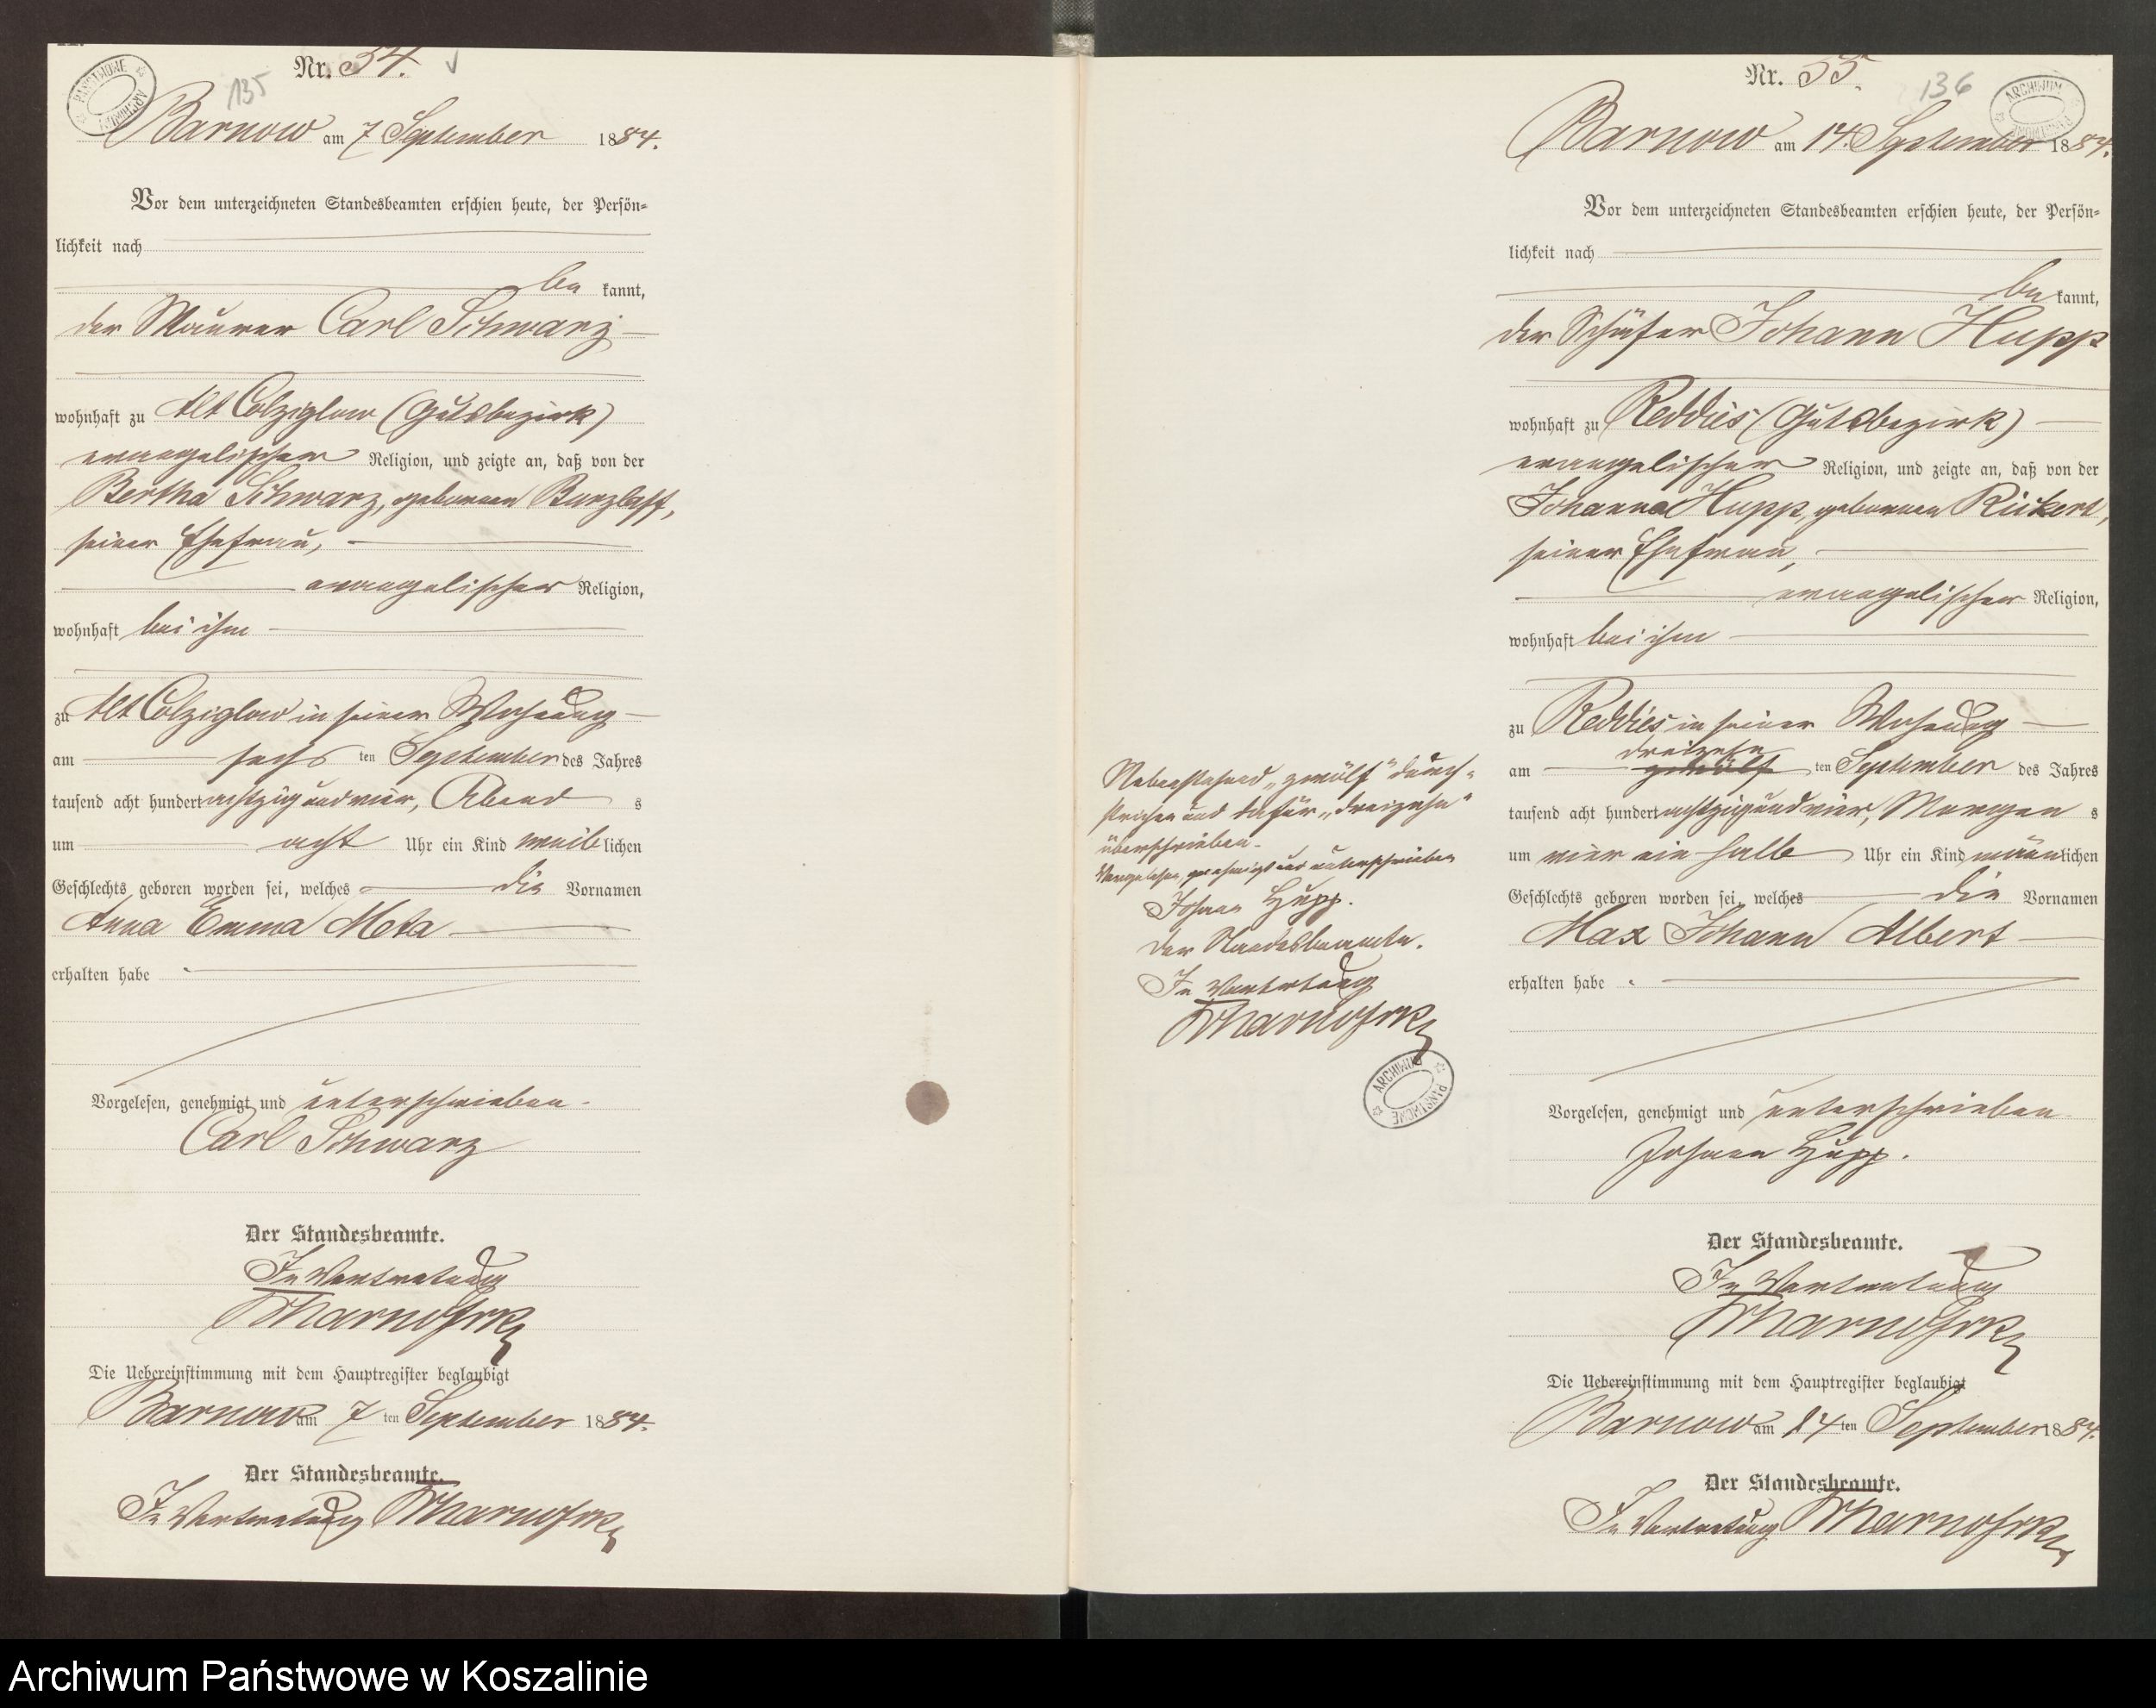 Nr. 34.
135
Barnow am 7 September 1884.
Vor dem unterzeichneten Standesbeamten erschien heute, der Persön-
lichkeit nach
be kannt,
der Maurer Carl Schwarz
wohnhaft zu Alt Colziglow (Gutsbezirk)
evangelischer Religion, und zeigte an, daß von der
Bertha Schwarz, geborenen Banzlaff,
seiner Ehefrau,
evangelischer Religion,
wohnhaft bei ihm
zu Alt Colziglow in seiner Wohnung
am sechs ten September des Jahres
tausend acht hundert achtzig und vier, Abend s
um acht Uhr ein Kind weib lichen
Geschlechts geboren worden sei, welches die Vornamen
Anna Emma Meta
erhalten habe
Vorgelesen, genehmigt und unterschrieben.
Carl Schwarz
Der Standesbeamte.
In Vertretung
Die Uebereinstimmung mit dem Hauptregister beglaubigt
Barnow am 7 ten September 1884.
Der Standesbeamte.
In Vertretung
Nebenstehend „zwölf“ durch-
strichen und dafür „dreizehn“
überschrieben.
Vorgelesen, genehmigt und unterschrieben
Johann Hupp.
Der Standesbeamte.
In Vertretung
ARCHIWUM PAŃSTWOWE
Nr. 35.
136
ARCHIWUM PAŃSTWOWE
Barnow am 14. September 1884.
Vor dem unterzeichneten Standesbeamten erschien heute, der Persön-
lichkeit nach
be kannt,
der Schäfer Johann Hupp
wohnhaft zu Reddies (Gutsbezirk)
evangelischer Religion, und zeigte an, daß von der
Johanna Hupp, geborenen Rickert,
seiner Ehefrau,
evangelischer Religion,
wohnhaft bei ihm
zu Reddies in seiner Wohnung
dreizehn
am zwölf ten September des Jahres
tausend acht hundert achtzig und vier, Morgen s
um vier ein halb Uhr ein Kind männ lichen
Geschlechts geboren worden sei, welches die Vornamen
Max Johann Albert
erhalten habe
Vorgelesen, genehmigt und unterschrieben
Johann Hupp.
Der Standesbeamte.
In Vertretung
Die Uebereinstimmung mit dem Hauptregister beglaubigt
Barnow am 14 ten September 1884.
Der Standesbeamte.
In Vertretung
Archiwum Państwowe w Koszalinie